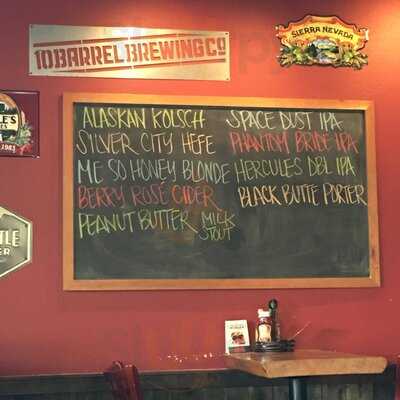 10 BARREL BREWING CO
SIERRA NEVADA
ALASKAN KOLSCH
SILVER CITY HEFE
ME SO HONEY BLONDE
BERRY ROSÉ CIDER
PEANUT BUTTER MILK STOUT
SPACE DUST IPA
PHANTOM BRIDE IPA
HERCULES DBL IPA
BLACK BUTTE PORTER